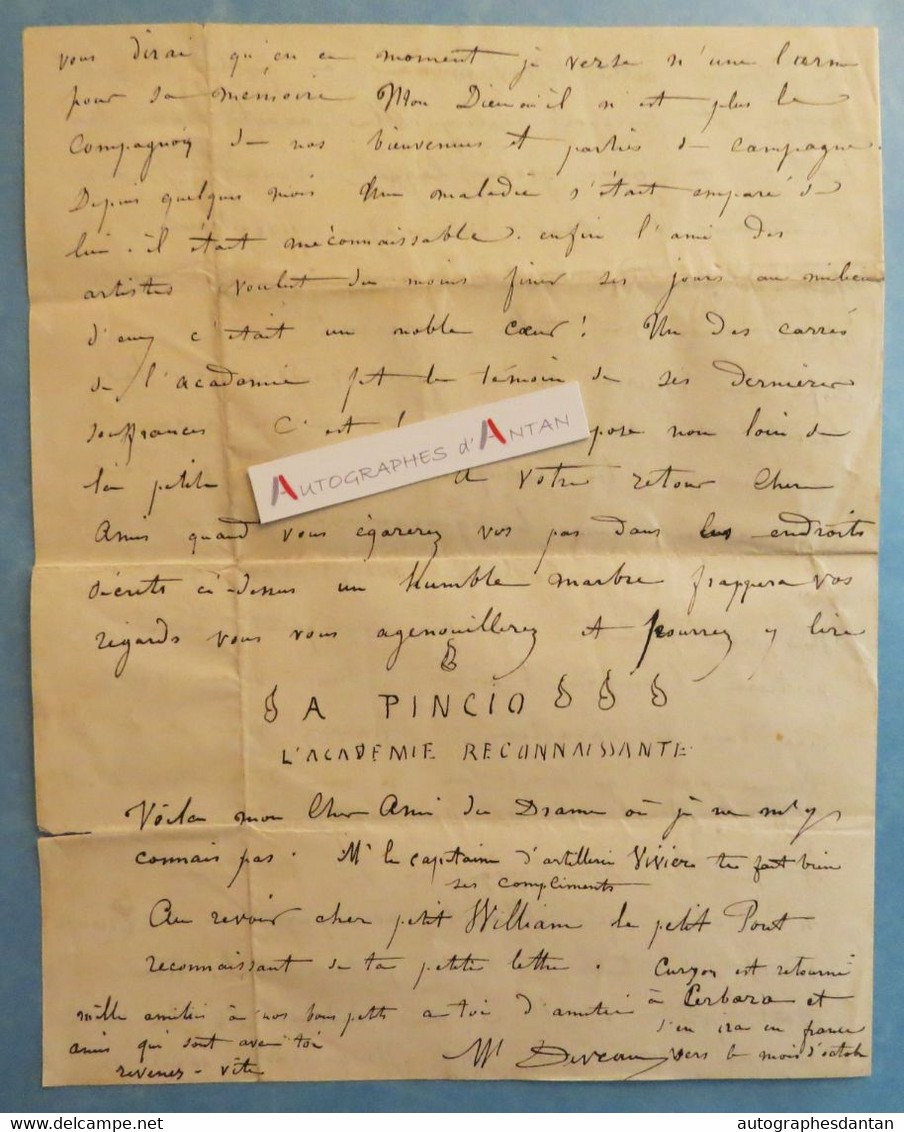 vous dirai qu'en ce moment je verse n'une larme
pour sa mémoire Mon Dieu oui il n'est plus le
compagnon de nos bienvenues et parties de campagne.
Depuis quelques mois Une maladie s'était emparé de
lui. il était méconnaissable. enfin l'ami des
artistes voulut du moins finir ses jours au milieu
d'eux c'était un noble cœur! Un des carrés
de l'académie fut le témoin de ses dernières
souffrances C'est pose non loin de
la petite A votre retour Chers
Amis quand vous égarerez vos pas dans les endroits
décrits ci-dessus un humble marbre frappera vos
regards vous vous agenouillerez et pourrez y lire
A PINCIO
L'ACADEMIE RECONNAISSANTE
Voilà mon Cher Ami du Drame où je ne m'y
connais pas. Mr le capitaine d'artillerie Vivier te fait bien
ses compliments
Au revoir cher petit William le petit Pont
reconnaissant de ta petite lettre.
Curzon est retourné
à Cerbara et
s'en ira en france
vers le mois d'octob
mille amitiés à nos bons petits
amis qui sont avec toi
revenez-vite
a toi d'amitié
AUTOGRAPHES d'ANTAN
delcampe.net
autographesdantan